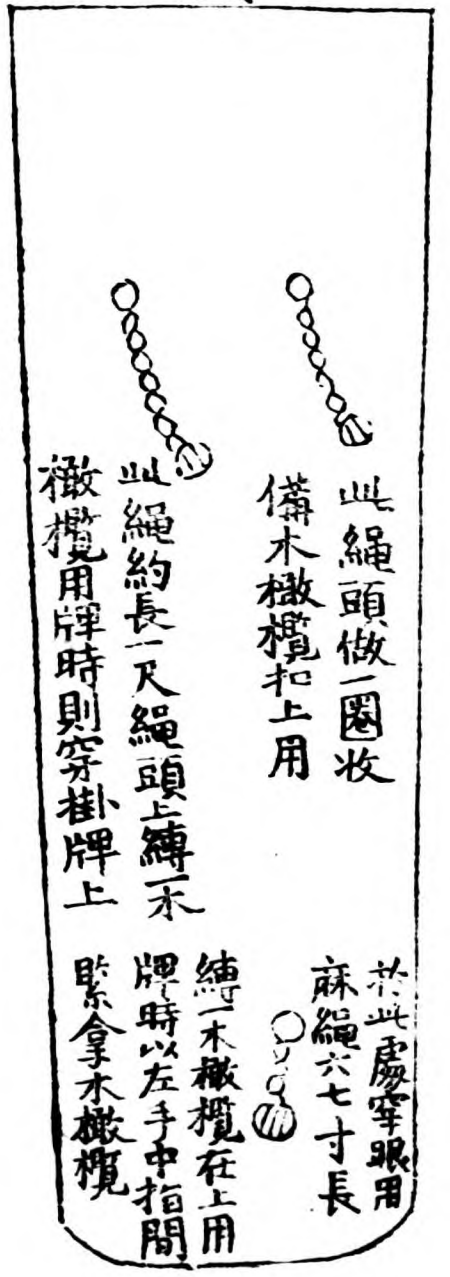 此繩頭做一圈收
備木橄欖扣上用
此繩約長一尺繩頭上縛一木
橄欖用牌時則穿掛牌上
於此處穿眼用
麻繩六七寸長
縛一木橄欖在上用
牌時以左手中指間
緊拿木橄欖